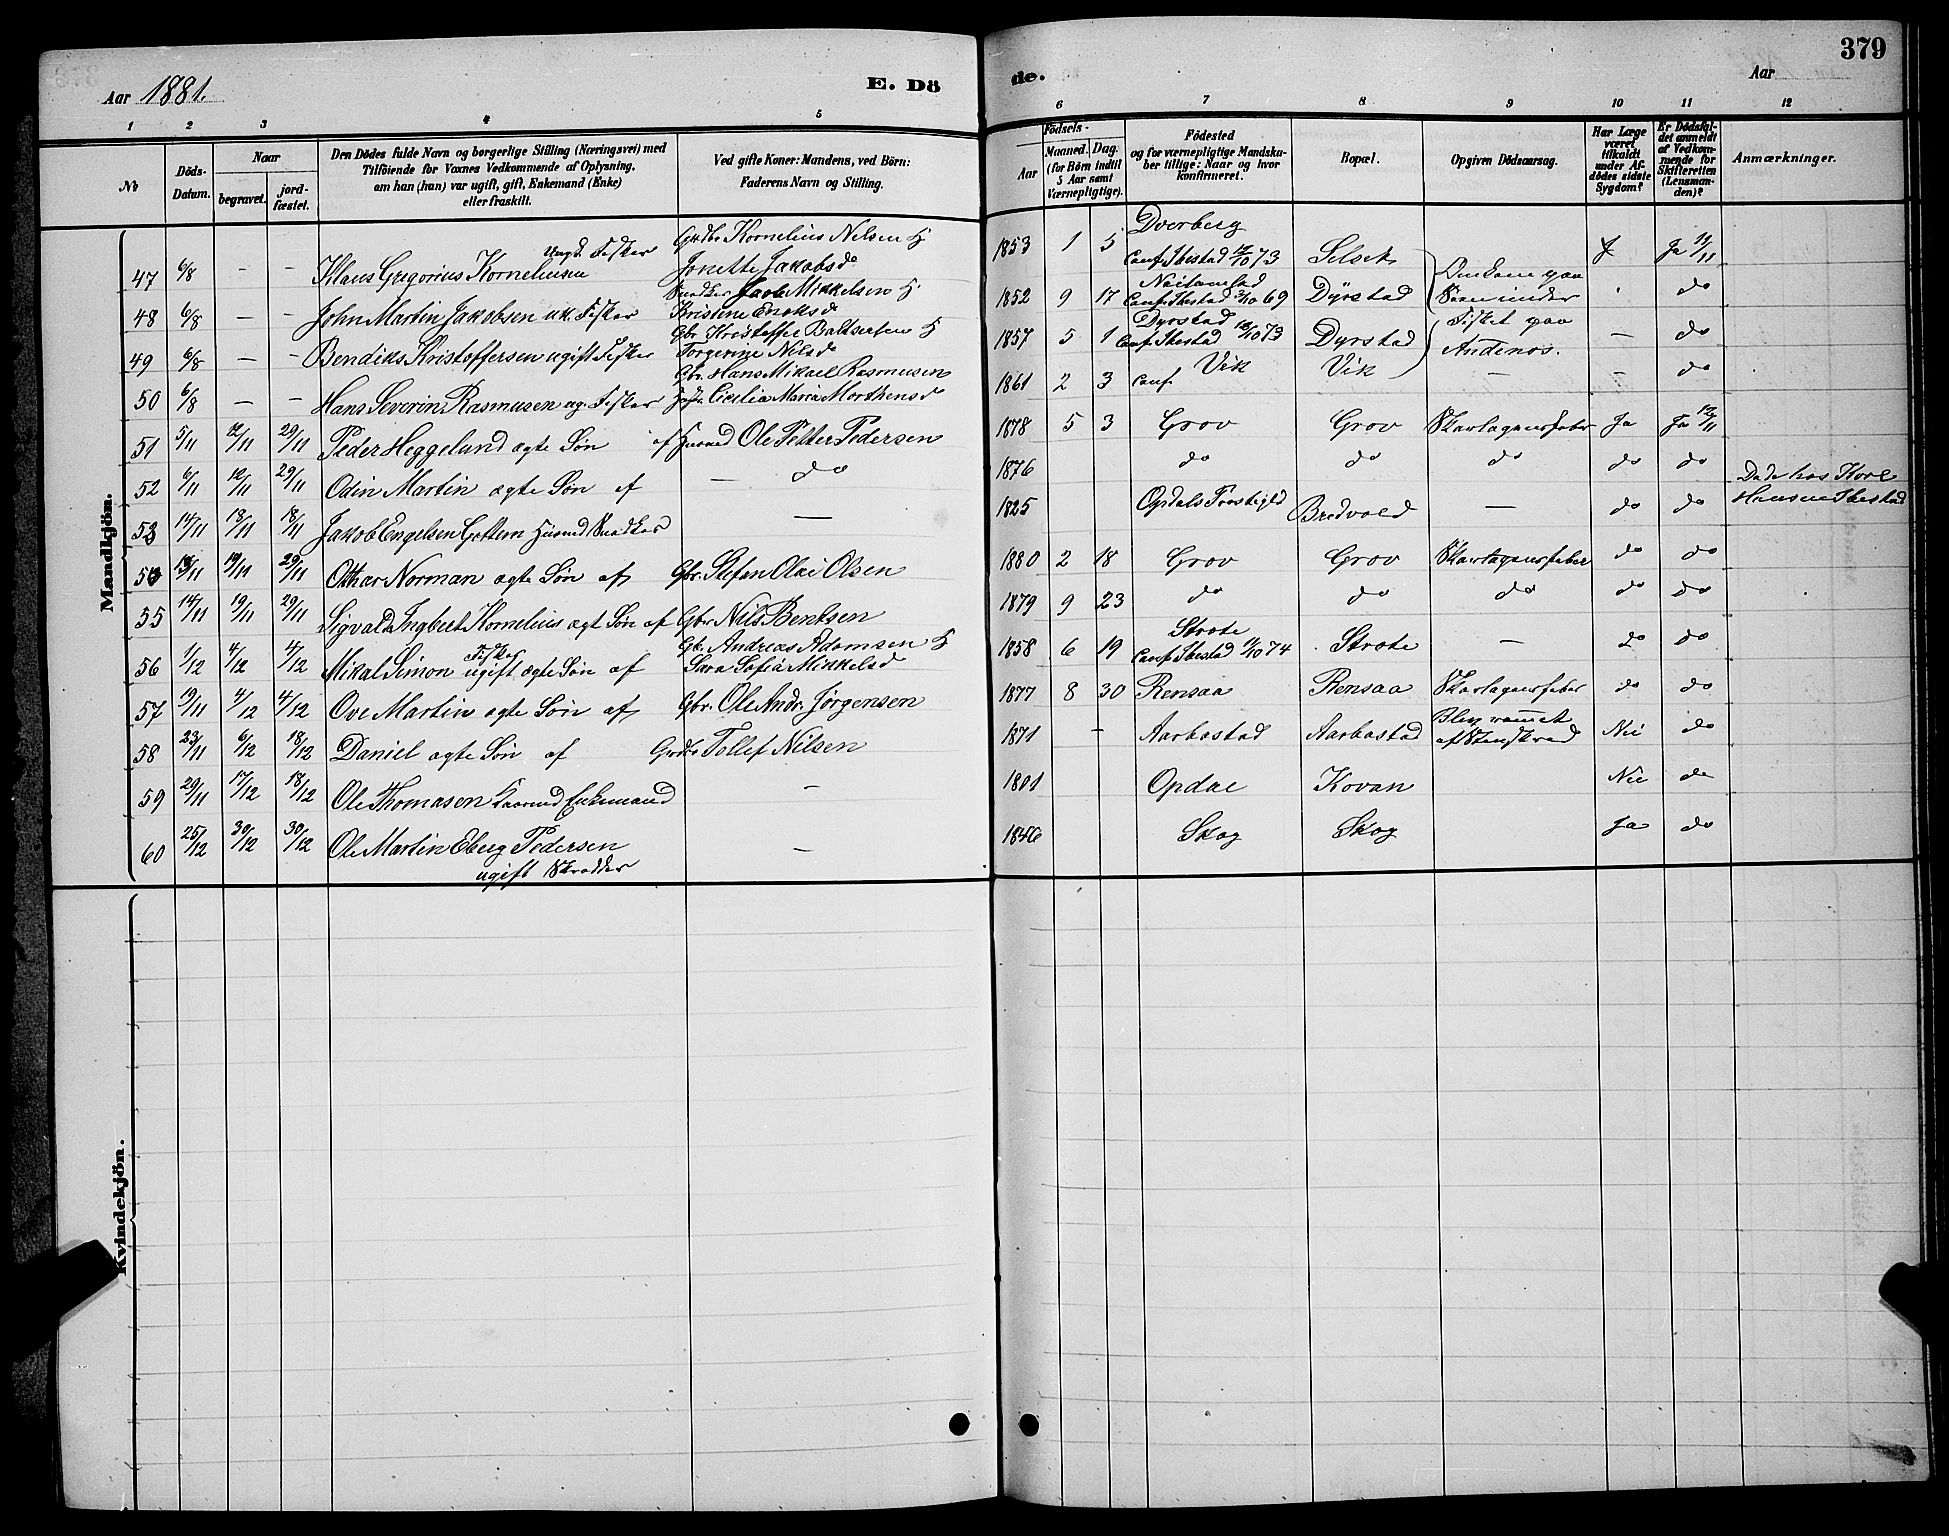 379
Aar 1881.
E. Dö
de.
Aar
1 2 3 4 5 6 7 8 9 10 11 12
No
Döds-Datum.
Naar
begravet.
jord-fæstet.
Den Dödes fulde Navn og borgerlige Stilling (Næringsvei) med
Tilföiende for Voxnes Vedkommende af Oplysning,
om han (hun) var ugift, gift, Enkemand (Enke)
eller fraskilt.
Ved gifte Koner: Mandens, ved Börn:
Faderens Navn og Stilling.
Födsels-
Aar
Maaned. Dag.
(for Börn indtil
5 Aar samt
Værnepligtige).
Födested
og for værnepligtige Mandska-
ber tillige: Naar og hvor
konfirmeret.
Bopæl.
Opgiven Dödsaarsag.
Har Læge
været
tilkaldt
under Af-
dödes sidste
Sygdom?
Er Dödsfal-
det anmeldt
af Vedkom-
mende for
Skifteretten
(Lensman-
den)?
Anmærkninger.
Mandkjön.
47 6/8 — — Klaus Gregorius Korneliusen Ungk. Fisker Grdbr Kornelius Nilsen H Jonette Jakobsd 1853 1 5 Dverberg Conf. Ibestad 73 Selset J Ja 11/11
48 6/8 — — John Martin Jakobsen uk. Fisker Snedker Jacob Mikkelsen H Kristine Enoksd 1852 9 17 Conf. Ibestad 69 Dyrstad Omkom paa under do
49 6/8 — — Bendiks Kristoffersen ugift Fisker Gbr Kristoffer Baltsersen H Torgerine Nilsd 1857 5 1 Dyrstad Conf. Ibestad 73 Dyrstad Fisket paa Andenes. — do
50 6/8 — — Hans Severin Rasmusen ug. Fisker Gbr. Hans Mikael Rasmusen Cecilia Maria Morthensd 1861 2 3 conf. Vik Vik — — do
51 5/11 12/11 29/11 Peder Heggelund ægte Søn af Husmd Ole Petter Pedersen 1878 5 3 Grov Grov Skarlagensfeber Ja Ja 12/11
52 6/11 12/11 29/11 Odin Martin ægte Søn af — do 1876 do do do do do
53 14/11 18/11 18/11 Jakob Engelsen Gottem Husmd Snedker — 1825 Opdals Prestegjld Bredvold — do do Døde hos Kore Hansen Ibestad
54 13/11 19/11 29/11 Otthar Norman ægte Søn af Gbr. Stefan Olai Olsen 1880 2 18 Grov Grov Skarlagensfeber do do
55 14/11 19/11 29/11 Sigvald Ingbert Kornelius ægt Søn af Gbr Nils Bentsen 1879 9 23 do do do do do
56 1/12 4/12 4/12 Mikal Simon Fisker ugift ægte Søn af Gb. Andreas Adamsen H Sara Sofia Mikkelsd 1858 6 19 Strote Conf. Ibestad 74 Strote — do do
57 19/11 4/12 4/12 Ove Martin ægte Søn af Gbr. Ole Andr. Jørgensen 1877 8 30 Rensaa Rensaa Skarlagensfeber do do
58 23/11 6/12 18/12 Daniel ægte Søn af Grdbr Tollef Nilsen 1871 — Aarbostad Aarbostad Blev rammet af Stenskred Nei do
59 29/11 17/12 18/12 Ole Thomasen Kaarmd Enkemand — 1801 Opdal Kovan Nei do
60 25/12 30/12 30/12 Ole Martin Eberg Pedersen — 1846 Skog Skog Ja do
ugift Skrædder
Kvindekjön.